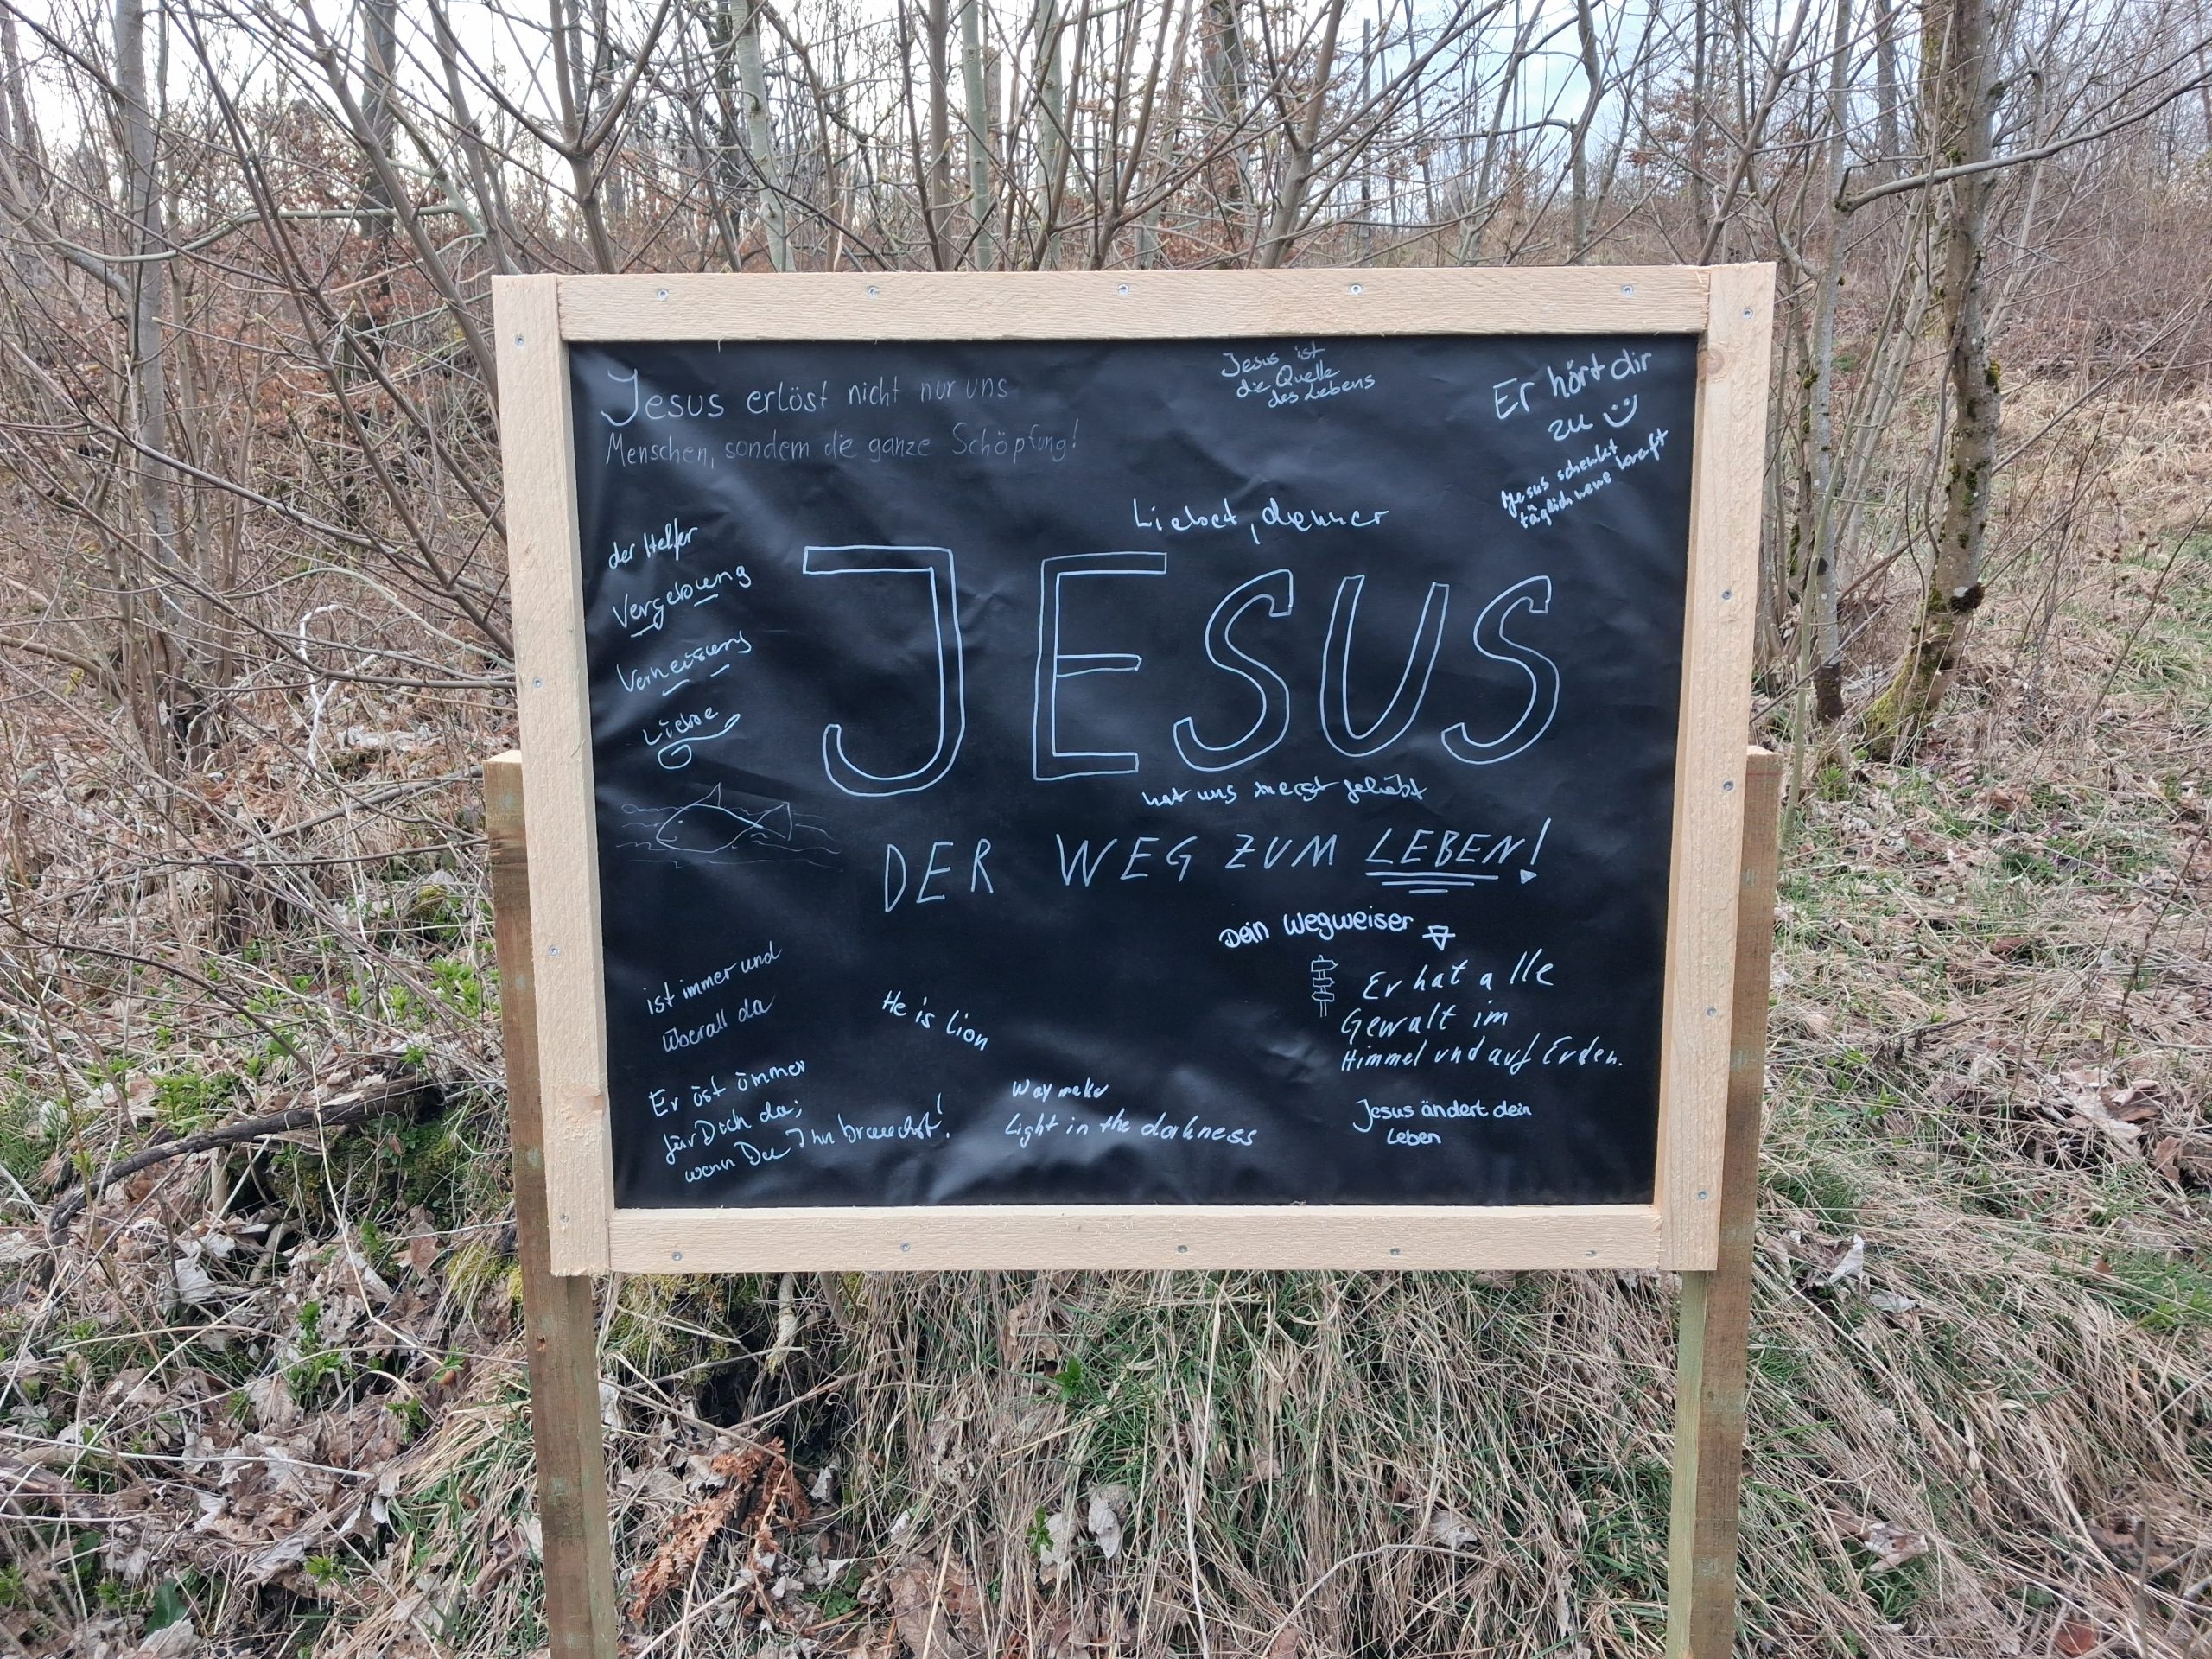 Jesus erlöst nicht nur uns
Menschen, sondern die ganze Schöpfung!
Jesus ist
die Quelle
des Lebens
Er hört dir
zu
Jesus schenkt
täglich neue kraft
Liebet, denn er
der Helfer
Vergebung
Verheisung
Liebe
JESUS
hat uns zuerst geliebt
DER WEG ZUM LEBEN!
Dein Wegweiser
Er hat alle
Gewalt im
Himmel und auf Erden.
ist immer und
überall da
He is Lion
Er öst ömmer
für Dich da;
wenn Du Ihn brauchst!
Way maker
Light in the darkness
Jesus ändert dein
Leben